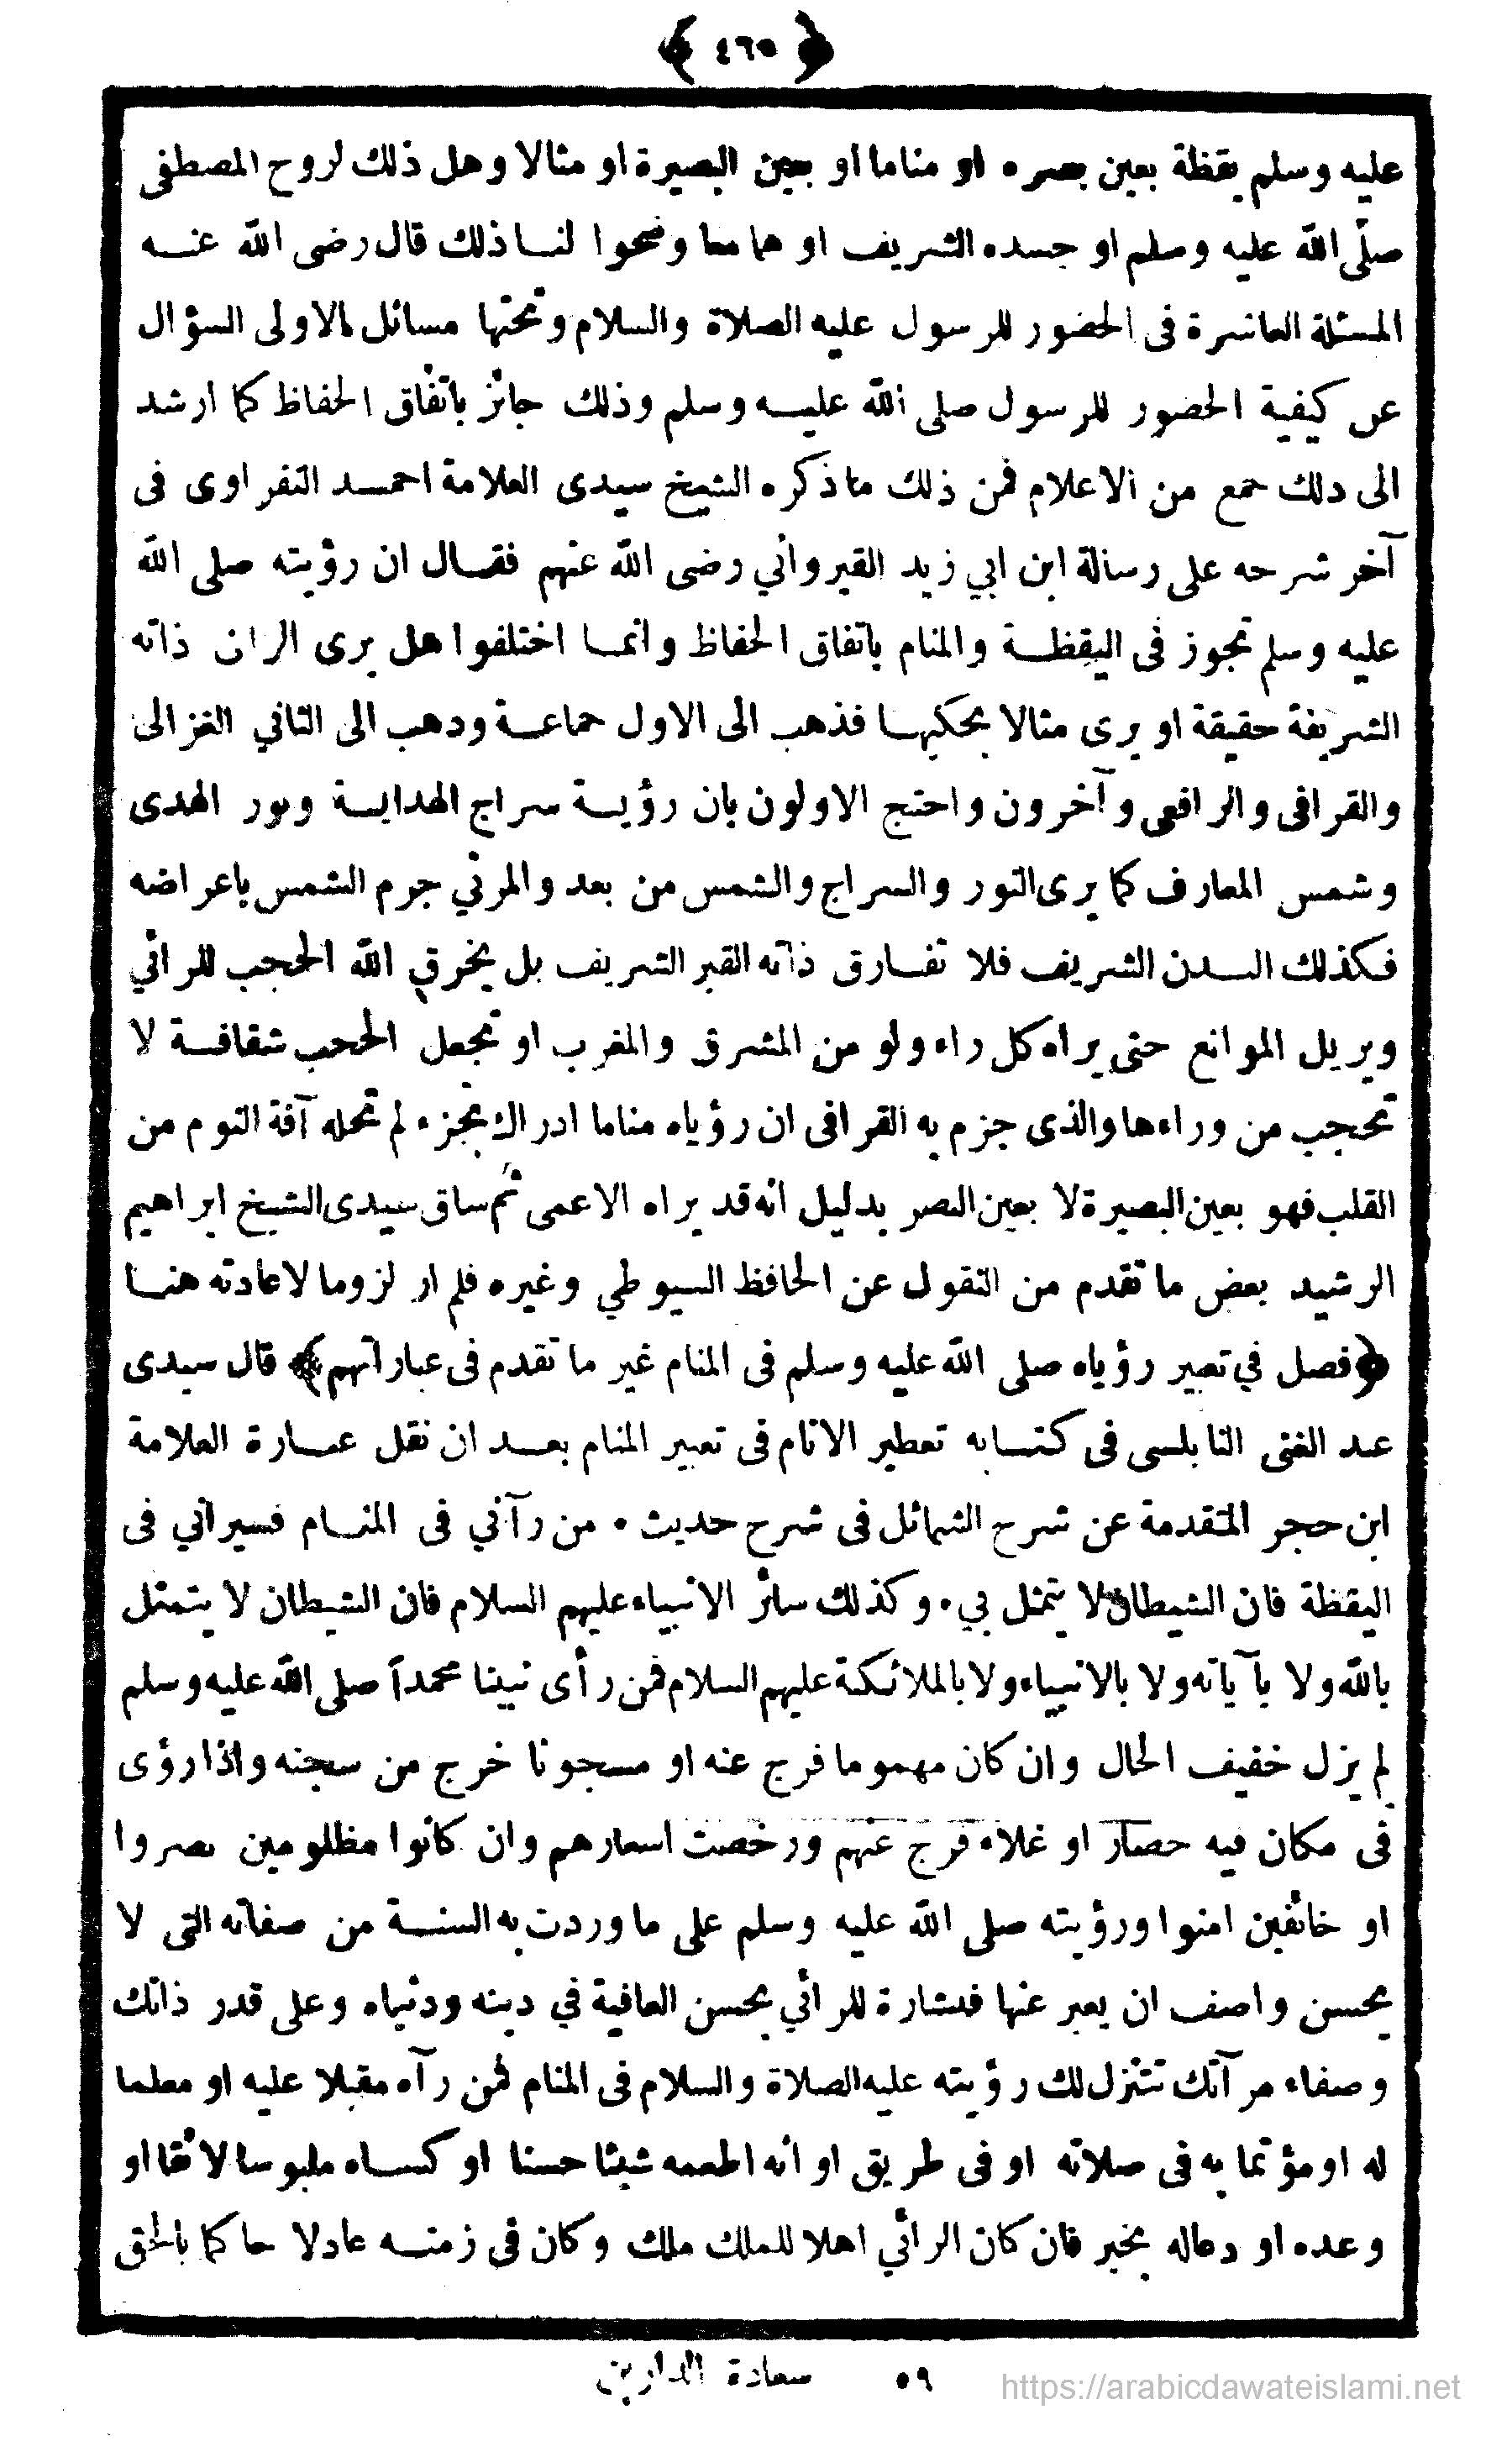 ﴿ ٤٦٥ ﴾
عليه وسلم يقظة بعين بصره او مناما او بعين البصيرة او مثالا وهل ذلك لروح المصطفى
صلى الله عليه وسلم او جسده الشريف او هما معا وضحوا لنا ذلك قال رضى الله عنه
المسئلة العاشرة فى الحضور للرسول عليه الصلاة والسلام وتحتها مسائل الاولى السؤال
عن كيفية الحضور للرسول صلى الله عليه وسلم وذلك جائز باتفاق الحفاظ كما ارشد
الى ذلك جمع من الاعلام فمن ذلك ما ذكره الشيخ سيدى العلامة احمد النفراوى فى
آخر شرحه على رسالة ابن ابي زيد القيرواني رضى الله عنهم فقال ان رؤيته صلى الله
عليه وسلم تجوز فى اليقظة والمنام باتفاق الحفاظ وانما اختلفوا هل يرى الرائ ذاته
الشريفة حقيقة او يرى مثالا يحكيها فذهب الى الاول جماعة وذهب الى الثاني الغزالى
والقرافى والرافعى وآخرون واحتج الاولون بان رؤية سراج الهداية ونور الهدى
وشمس المعارف كما يرى النور والسراج والشمس من بعد والمرئي جرم الشمس باعراضه
فكذلك البدن الشريف فلا تفارق ذاته القبر الشريف بل يخرق الله الحجب للرائي
ويزيل الموانع حتى يراه كل راء ولو من المشرق والمغرب او تجعل الحجب شفافة لا
تحجب من وراءها والذى جزم به القرافى ان رؤياه مناما ادراك بجزء لم تحله آفة النوم من
القلب فهو بعين البصيرة لا بعين البصر بدليل انه قد يراه الاعمى ثم ساق سيدى الشيخ ابراهيم
الرشيد بعض ما تقدم من النقول عن الحافظ السيوطي وغيره فلم ار لزوما لاعادته هنا
﴿فصل في تعبير رؤياه صلى الله عليه وسلم فى المنام غير ما تقدم فى عباراتهم﴾ قال سيدى
عبد الغنى النابلسى فى كتابه تعطير الانام فى تعبير المنام بعد ان نقل عبارة العلامة
ابن حجر المتقدمة عن شرح الشمائل فى شرح حديث • من رآني فى المنام فسيراني فى
اليقظة فان الشيطان لا يتمثل بي • وكذلك سائر الانبياء عليهم السلام فان الشيطان لا يتمثل
بالله ولا بآياته ولا بالانبياء ولا بالملائكة عليهم السلام فمن رأى نبينا محمداً صلى الله عليه وسلم
لم يزل خفيف الحال وان كان مهموما فرج عنه او مسجونا خرج من سجنه واذا رؤى
فى مكان فيه حصار او غلاء فرج عنهم ورخصت اسعارهم وان كانوا مظلومين نصروا
او خائفين امنوا ورؤيته صلى الله عليه وسلم على ما وردت به السنة من صفاته التى لا
يحسن واصف ان يعبر عنها فبشارة للرائي بحسن العافية في دينه ودنياه وعلى قدر ذاتك
وصفاء مرآتك تتنزل لك رؤيته عليه الصلاة والسلام فى المنام فمن رآه مقبلا عليه او معلما
له او مؤتما به فى صلاته او فى طريق او انه اطعمه شيئا حسنا او كساه ملبوسا لائقا او
وعده او دعا له بخير فان كان الرائي اهلا للملك ملك وكان فى زمنه عادلا حاكما بالحق
٥٩ سعادة الدارين
https://arabicdawateislami.net